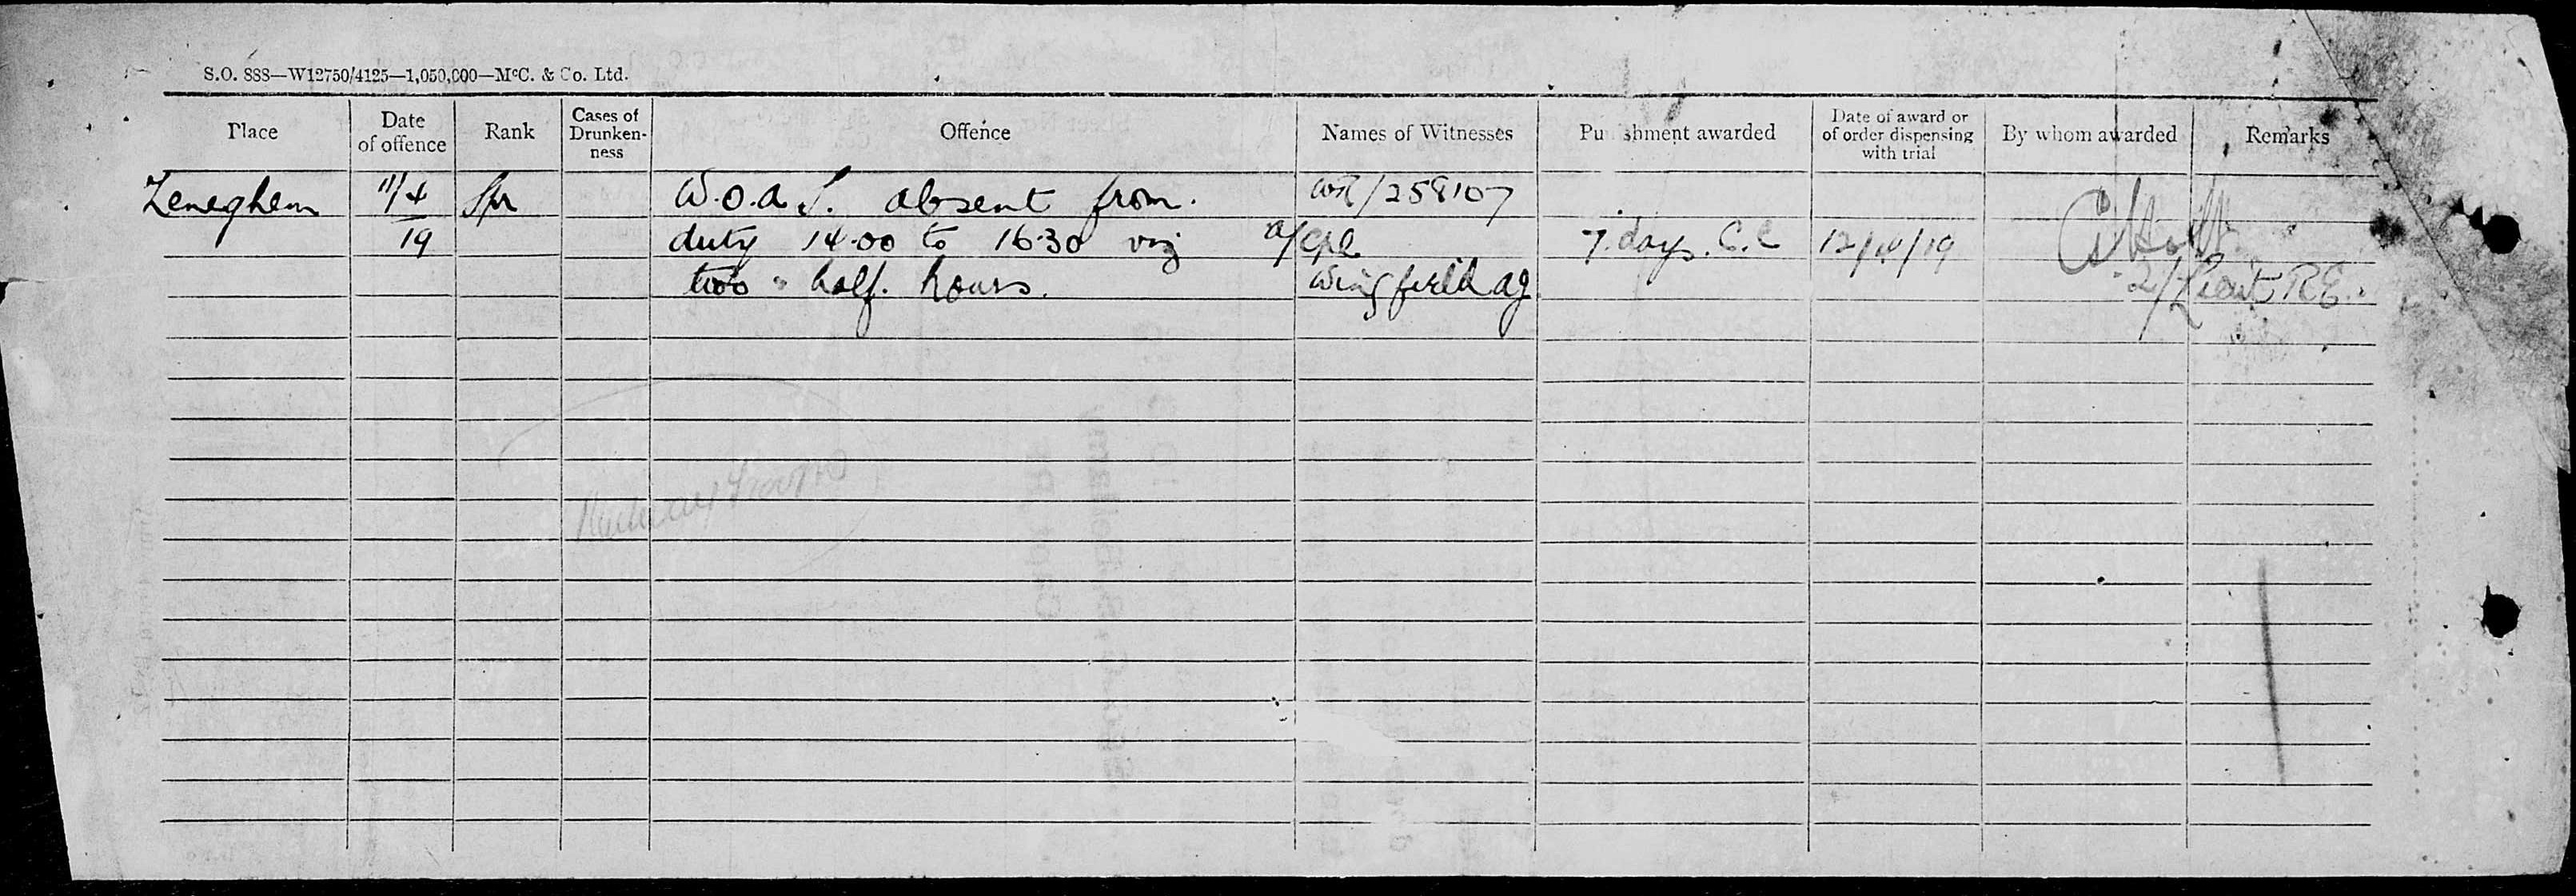 S.O. 888—W12750/4125—1,050,000—McC. & Co. Ltd.
Place
Date
of offence
Rank
Cases of
Drunken-
ness
Offence
Names of Witnesses
Punishment awarded
Date of award or
of order dispensing
with trial
By whom awarded
Remarks
Zeneghem 11/4 Spr W.O.A.S. absent from. WR/258107
19 duty 14.00 to 16.30 viz a/Cpl 7. days. C.C 12/4/19
two " half. hours. Wingfield AG 2/Lieut RE.